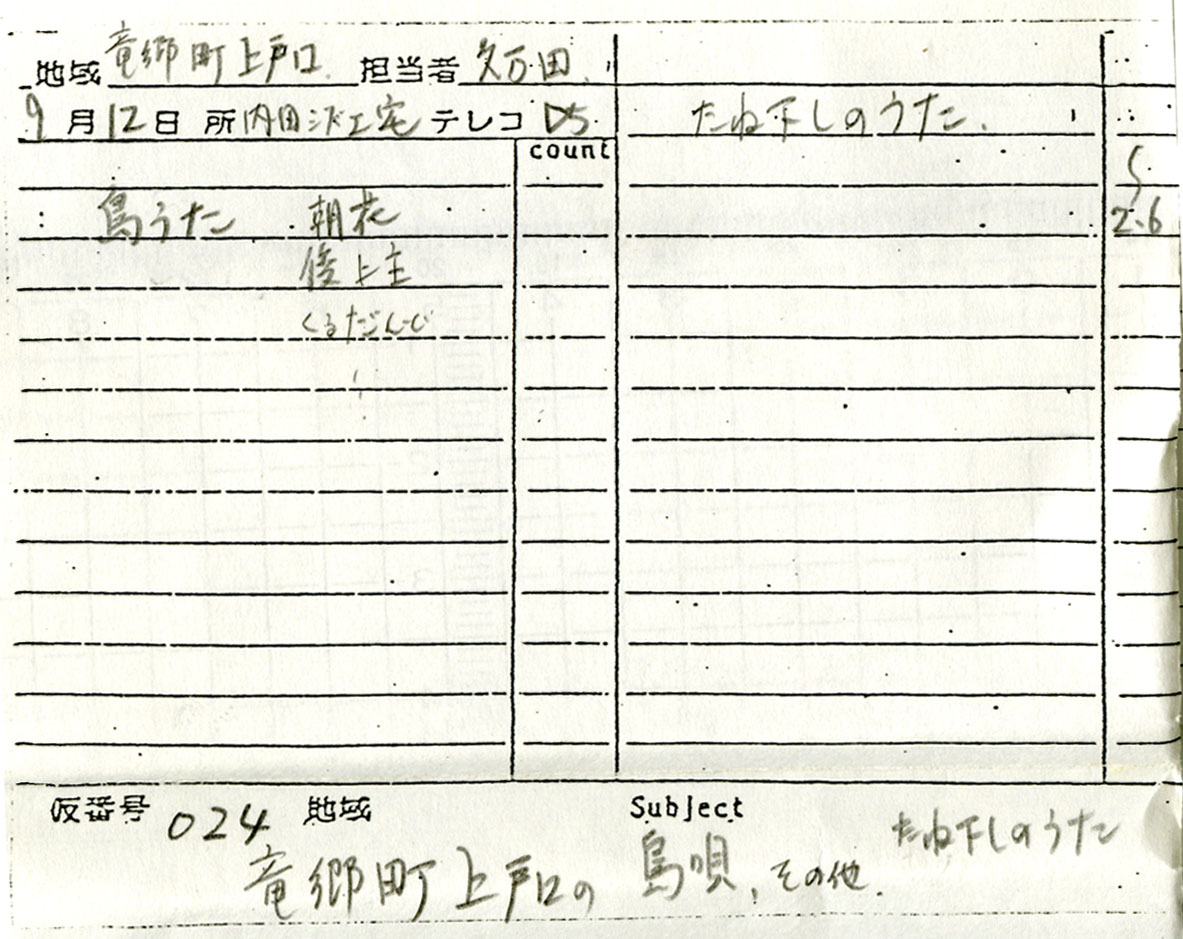 地域 竜郷町上戸口 担当者 久万田
9月12日 所 内田沢江宅 テレコ D5
count
島うた 朝花
俊上主
くるだんど
たね下しのうた
2.6
仮番号 024 地域 竜郷町上戸口の
Subject 島唄、その他 たね下しのうた